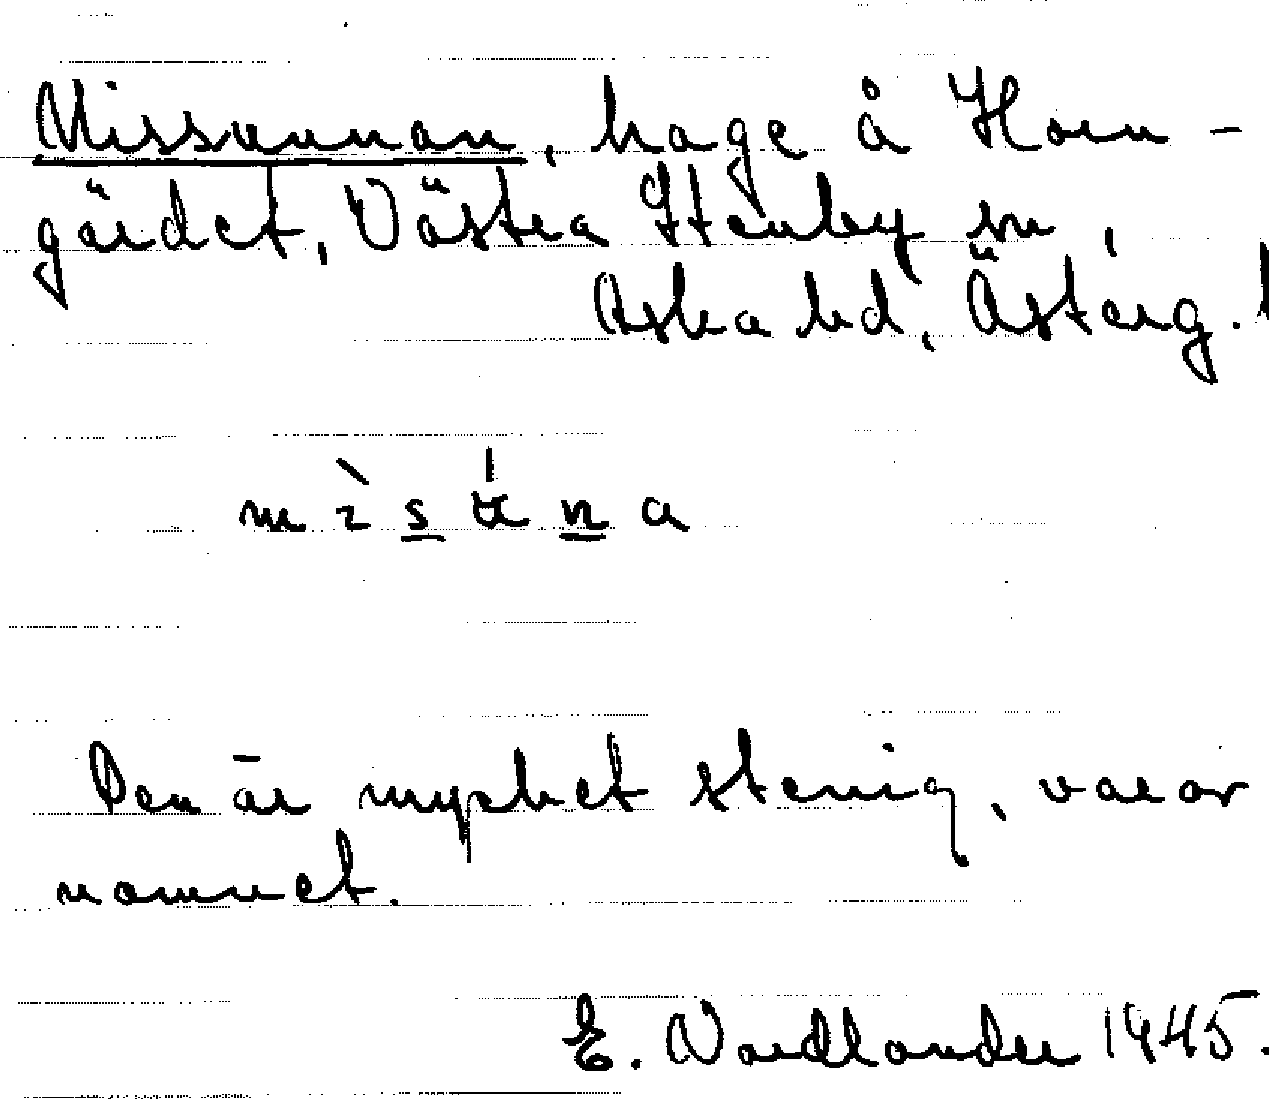 Missunnan, hage å Horn-
gärdet, Västra Stenby sn,
Aska hd, Österg. l
mìsúna
Den är mycket stenig, varav
namnet.
E. Nordlander 1945.